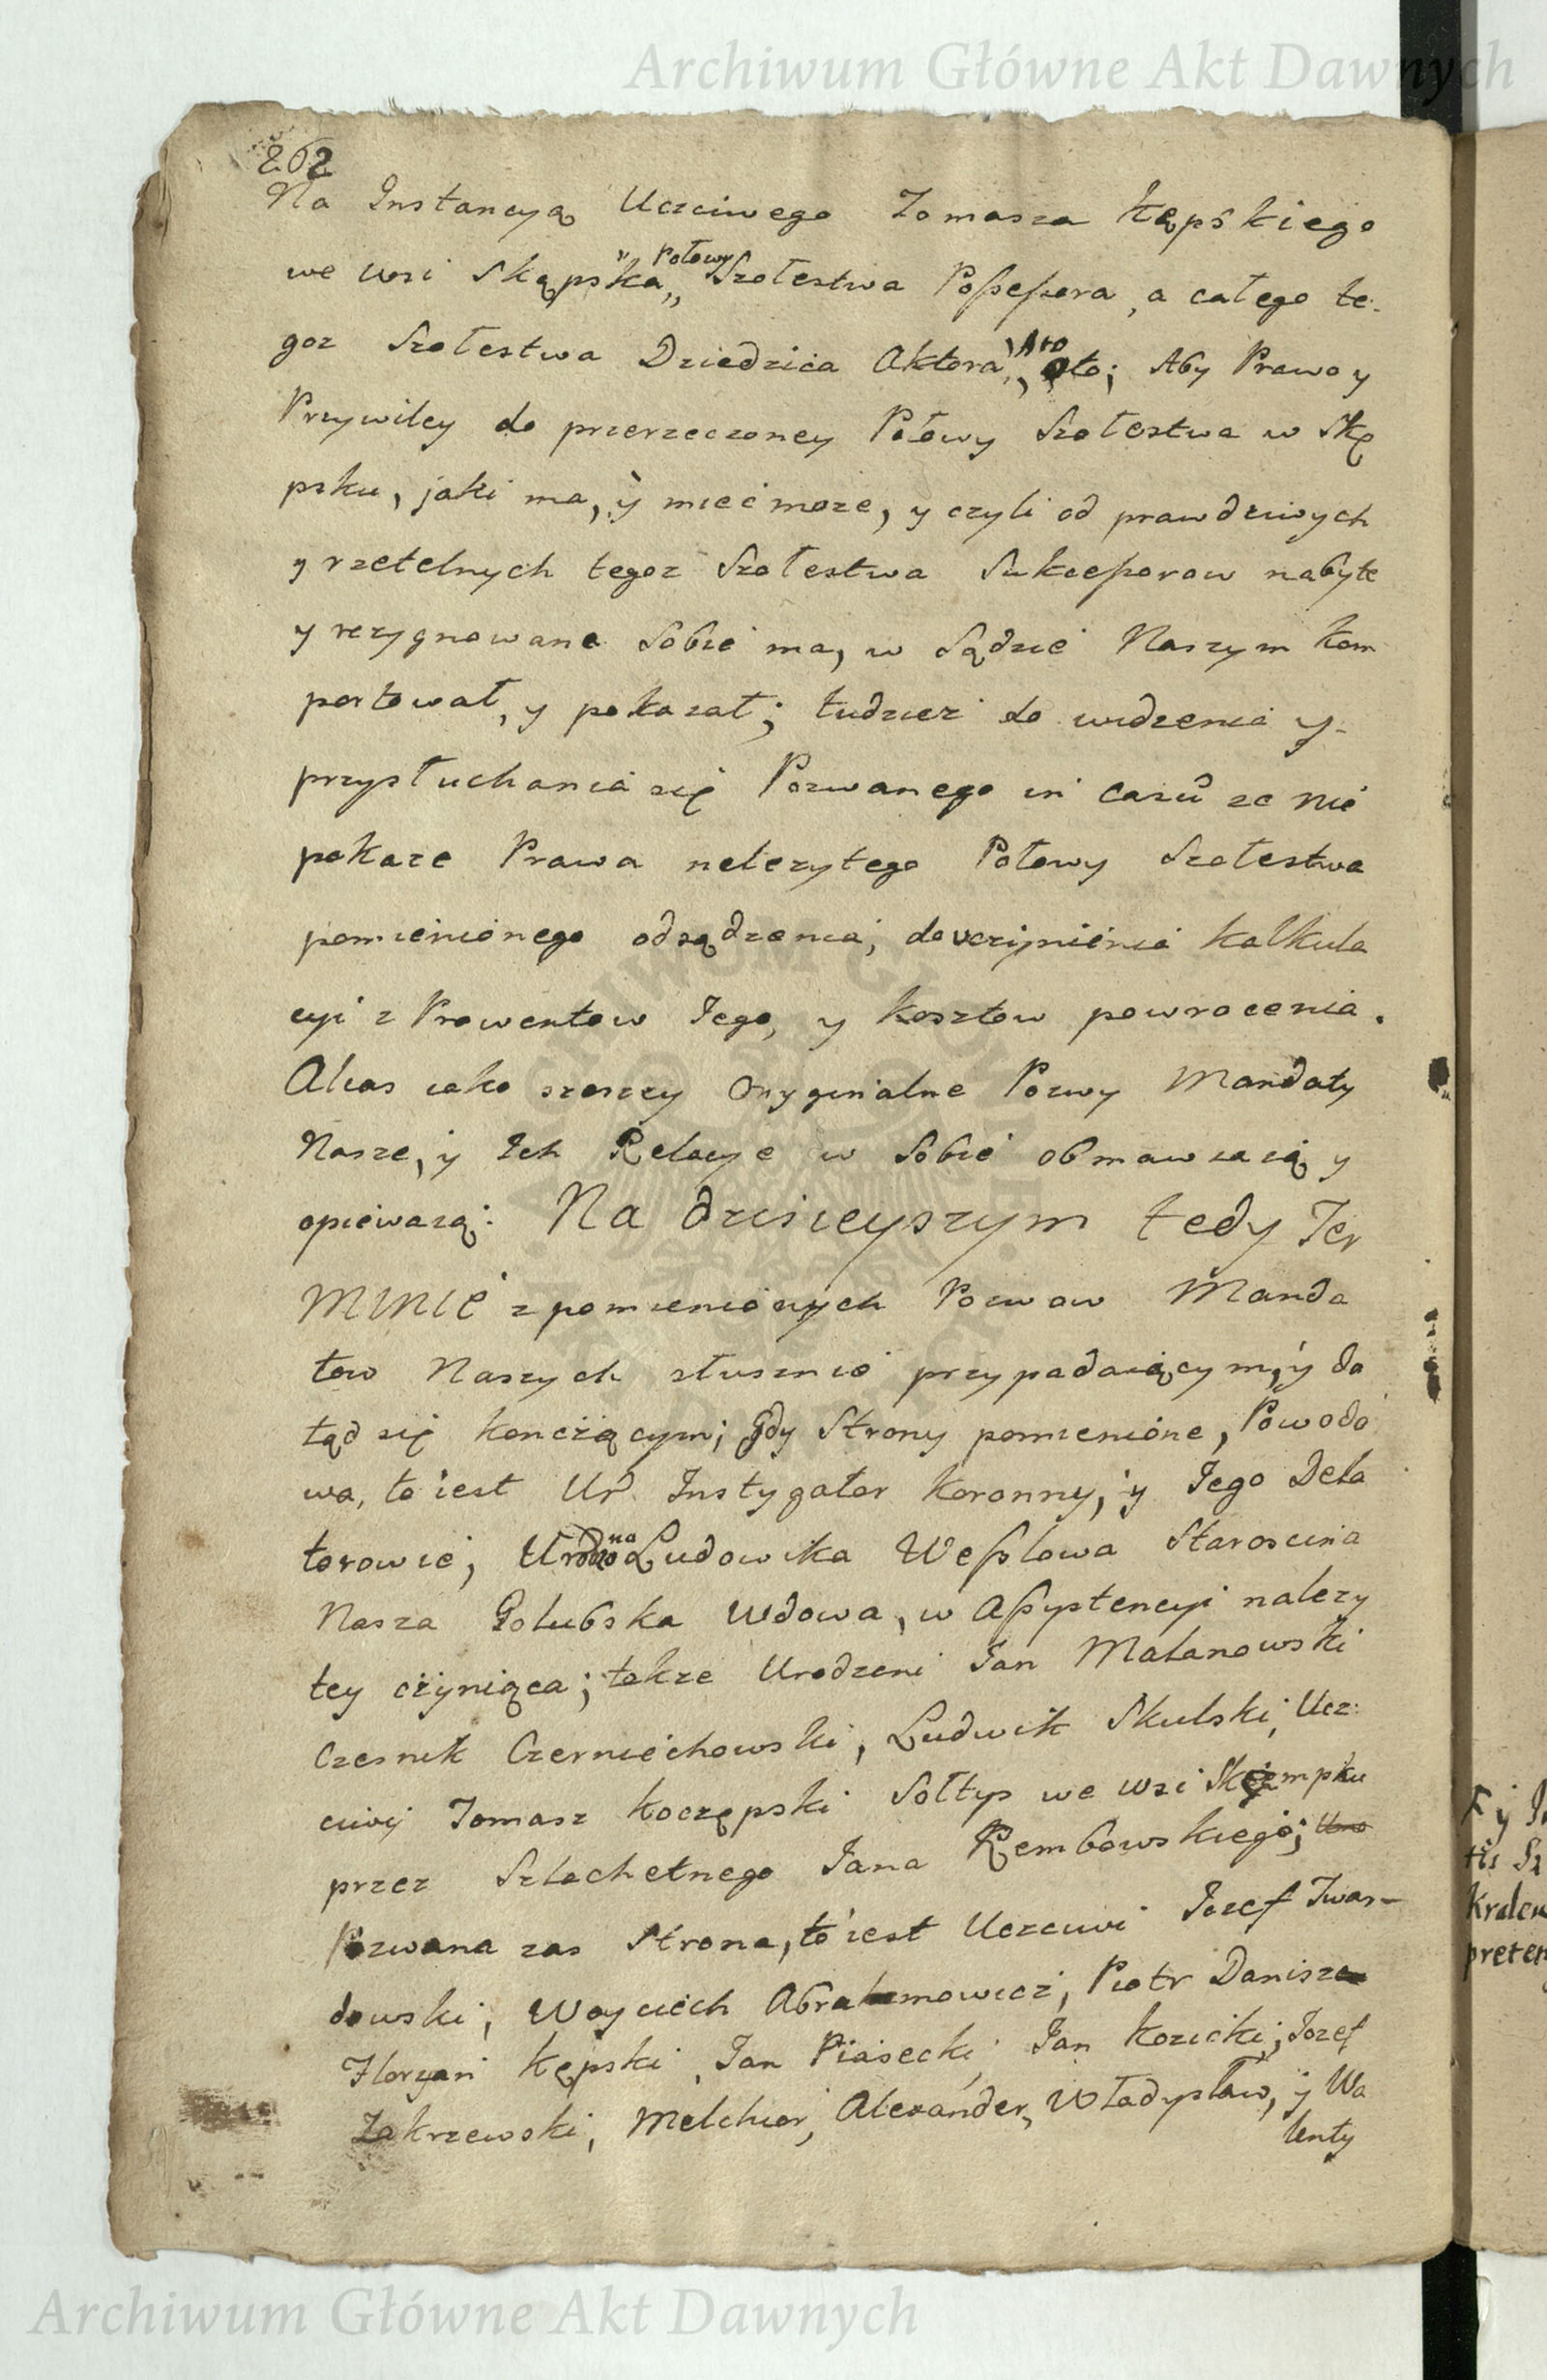 Archiwum Główne Akt Dawnych
262
Na Instancyą Uczciwego Tomasza Kępskiego
we wsi Skąpska „Połowy Szołestwa Possessora, a całego te-
goz Szołestwa Dziedzica Aktora, Ato; Aby Prawo y
Przywiley do przerzeczoney Połowy Szołestwa w Skę
psku, jaki ma, y mieć moze, y czyli od prawdziwych
y rzetelnych tegoz Szołestwa Sukcessorow nabyte
y rezygnowane Sobie ma, w Sądzie Naszym kom
portował, y pokazał; tudziez do widzenia y
przysłuchania się Pozwanego in casu ze nie
pokaze Prawa nalezytego Połowy Szołestwa
pomienionego odsądzenia, do uczynienia kalkula
cyi z Prowentow Iego, y kosztow powrocenia.
Alias iako szerzey Oryginalne Pozwy Mandaty
Nasze, y Ich Relacye w Sobie obmawiaią y
opiewaią: Na dzisieyszym tedy Ter
minie z pomienionych Pozwow Manda
tow Naszych słusznie przypadaiącym, y do
tąd się konczącym; Gdy Strony pomienione, Powodo
wa, to iest Ur. Instygator Koronny, y Iego Dela
torowie, Urodzona Ludowika Wesslowa Starościna
Nasza Golubska Wdowa, w Assystencyi nalezy
tey czyniąca; takze Urodzeni Jan Malanowski
Czesnik Czerniechowski, Ludwik Skulski, Ucz:
ciwy Tomasz Koczępski Sołtys we wsi Skępmpku
przez Szlachetnego Jana Rembowskiego;
Pozwana zas Strona, to iest Uczciwi Jozef Twar-
dowski, Woyciech Abrahmowicz, Piotr Danisz
Floryan Kępski, Jan Piasecki, Jan Kozicki, Jozef
Zakrzewski, Melchior, Alexander, Władysław, y Wa
lenty
F y
tis Sz
Krolew
preten
Archiwum Główne Akt Dawnych